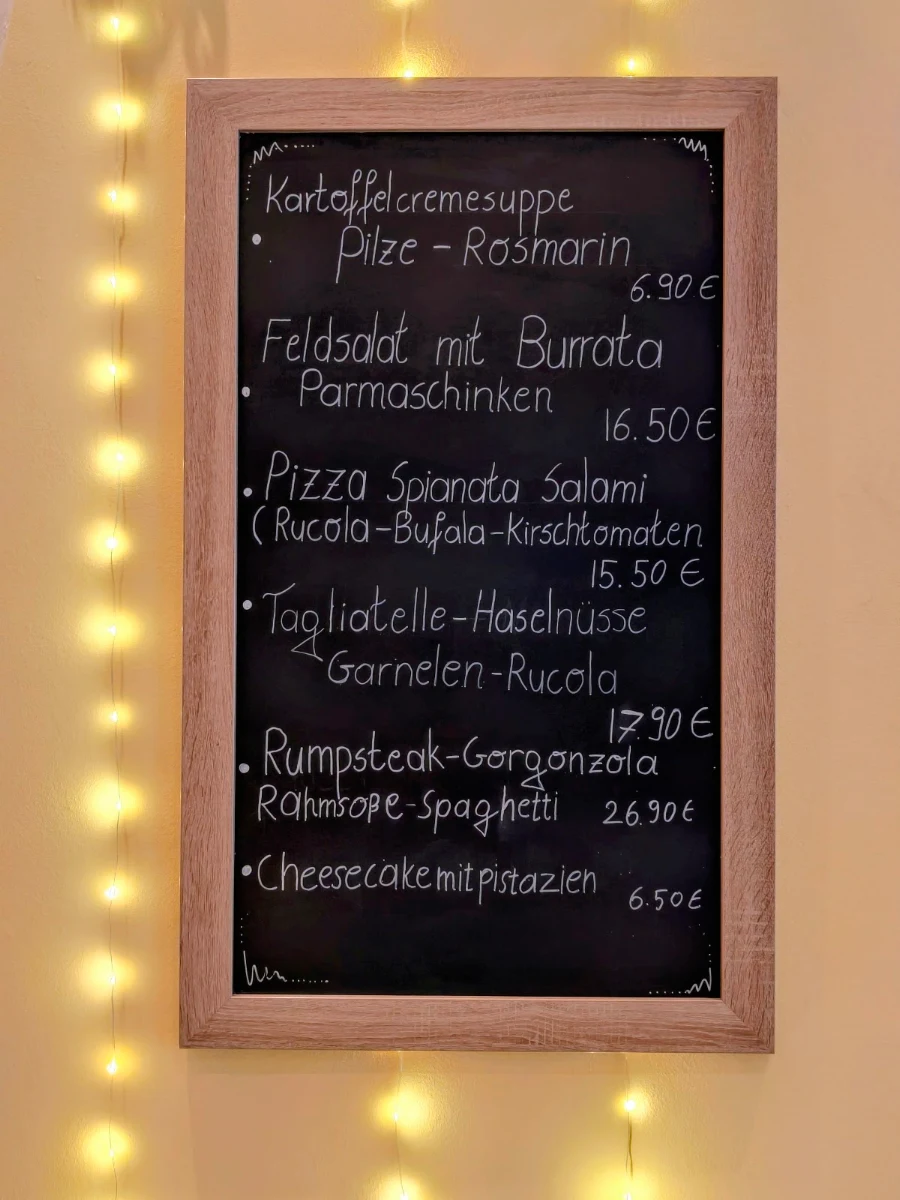 Kartoffelcremesuppe
• Pilze - Rosmarin
6.90 €
Feldsalat mit Burrata
• Parmaschinken
16.50 €
• Pizza Spianata Salami
(Rucola-Bufala-Kirschtomaten
15.50 €
• Tagliatelle-Haselnüsse
Garnelen-Rucola
17.90 €
• Rumpsteak-Gorgonzola
Rahmsoße-Spaghetti 26.90 €
• Cheesecake mit pistazien
6.50 €